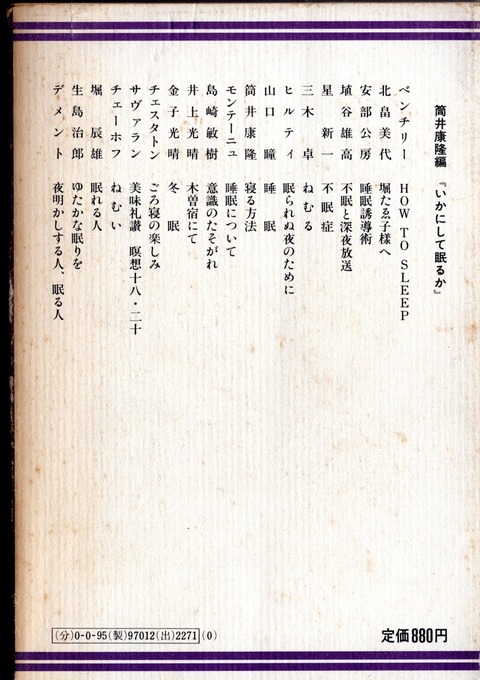 筒井康隆編 『いかにして眠るか』
ベンチリー HOW TO SLEEP
北畠美代 堀たゑ子様へ
安部公房 睡眠誘導術
埴谷雄高 不眠と深夜放送
星新一 不眠症
三木卓 ねむる
ヒルティ 眠られぬ夜のために
山口瞳 睡眠
筒井康隆 寝る方法
モンテーニュ 睡眠について
島崎敏樹 意識のたそがれ
井上光晴 木曽宿にて
金子光晴 冬眠
チェスタトン ごろ寝の楽しみ
サヴァラン 美味礼讃 瞑想十八・二十
チェーホフ ねむい
堀辰雄 眠れる人
生島治郎 ゆたかな眠りを
デメント 夜明かしする人、眠る人
(分)0-0-95(製)97012(出)2271(0)
定価880円